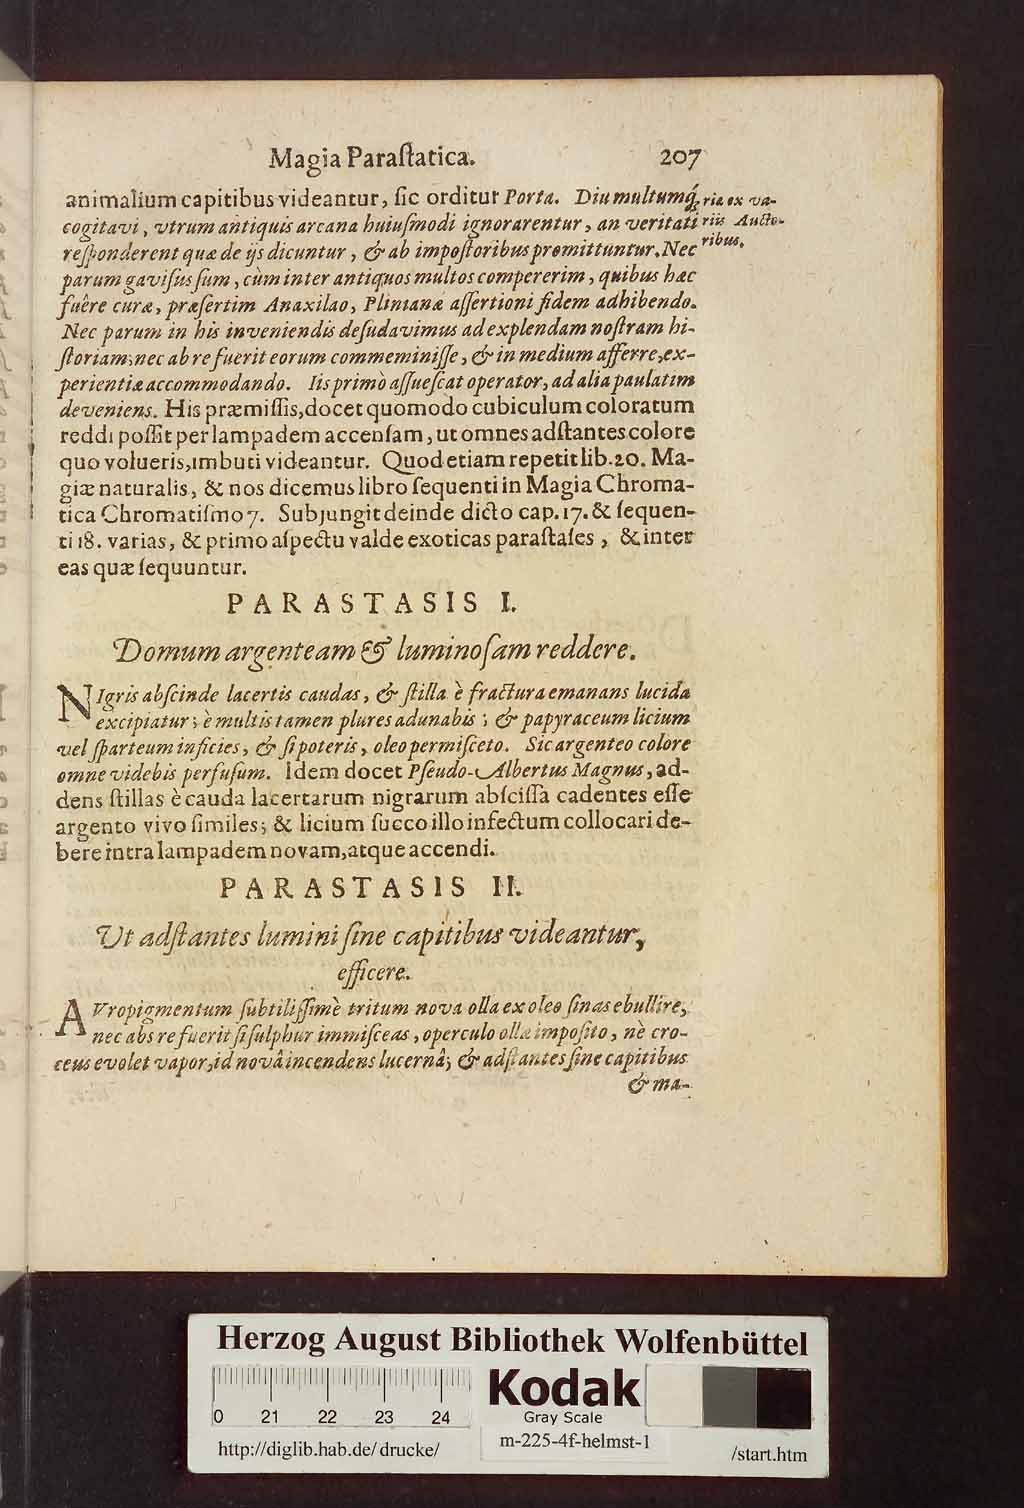 Magia Paraſtatica. 207
animalium capitibus videantur, ſic orditur Porta. Diu multumq́;
cogitavi, vtrum antiquis arcana huiuſmodi ignorarentur, an veritati
reſponderent quæ de ijs dicuntur, & ab impoſtoribus promittuntur. Nec
parum gaviſus ſum, cùm inter antiquos multos compererim, quibus hæc
fuêre curæ, præſertim Anaxilao, Plinianæ aſſertioni fidem adhibendo.
Nec parum in his inveniendis deſudavimus ad explendam noſtram hi-
ſtoriam; nec ab re fuerit eorum commeminiſſe, & in medium afferre, ex-
perientiæ accommodando. Iis primò aſſueſcat operator, ad alia paulatim
deveniens. His præmiſſis, docet quomodo cubiculum coloratum
reddi poſſit per lampadem accenſam, ut omnes adſtantes colore
quo volueris, imbuti videantur. Quod etiam repetit lib. 20. Ma-
giæ naturalis, & nos dicemus libro ſequenti in Magia Chroma-
tica Chromatiſmo 7. Subjungit deinde dicto cap. 17. & ſequen-
ti 18. varias, & primo aſpectu valde exoticas paraſtaſes, & inter
eas quæ ſequuntur.
ria ex va-
riis Aucto-
ribus.
PARASTASIS I.
Domum argenteam & luminoſam reddere.
NIgris abſcinde lacertis caudas, & ſtilla è fractura emanans lucida
excipiatur; è multis tamen plures adunabis; & papyraceum licium
vel ſparteum inficies, & ſi poteris, oleo permiſceto. Sic argenteo colore
omne videbis perfuſum. Idem docet Pſeudo-Albertus Magnus, ad-
dens ſtillas è cauda lacertarum nigrarum abſciſſa cadentes eſſe
argento vivo ſimiles; & licium ſucco illo infectum collocari de-
bere intra lampadem novam, atque accendi.
PARASTASIS II.
Ut adſtantes lumini ſine capitibus videantur,
efficere.
AVropigmentum ſubtiliſſimè tritum nova olla ex oleo ſinas ebullire,
nec abs re fuerit ſi ſulphur immiſceas, operculo ollæ impoſito, nè cro-
ceus evolet vapor, id novâ incendens lucernâ; & adſtantes ſine capitibus
& ma-
Herzog August Bibliothek Wolfenbüttel
0 21 22 23 24
Kodak
Gray Scale
http://diglib.hab.de/drucke/ m-225-4f-helmst-1 /start.htm